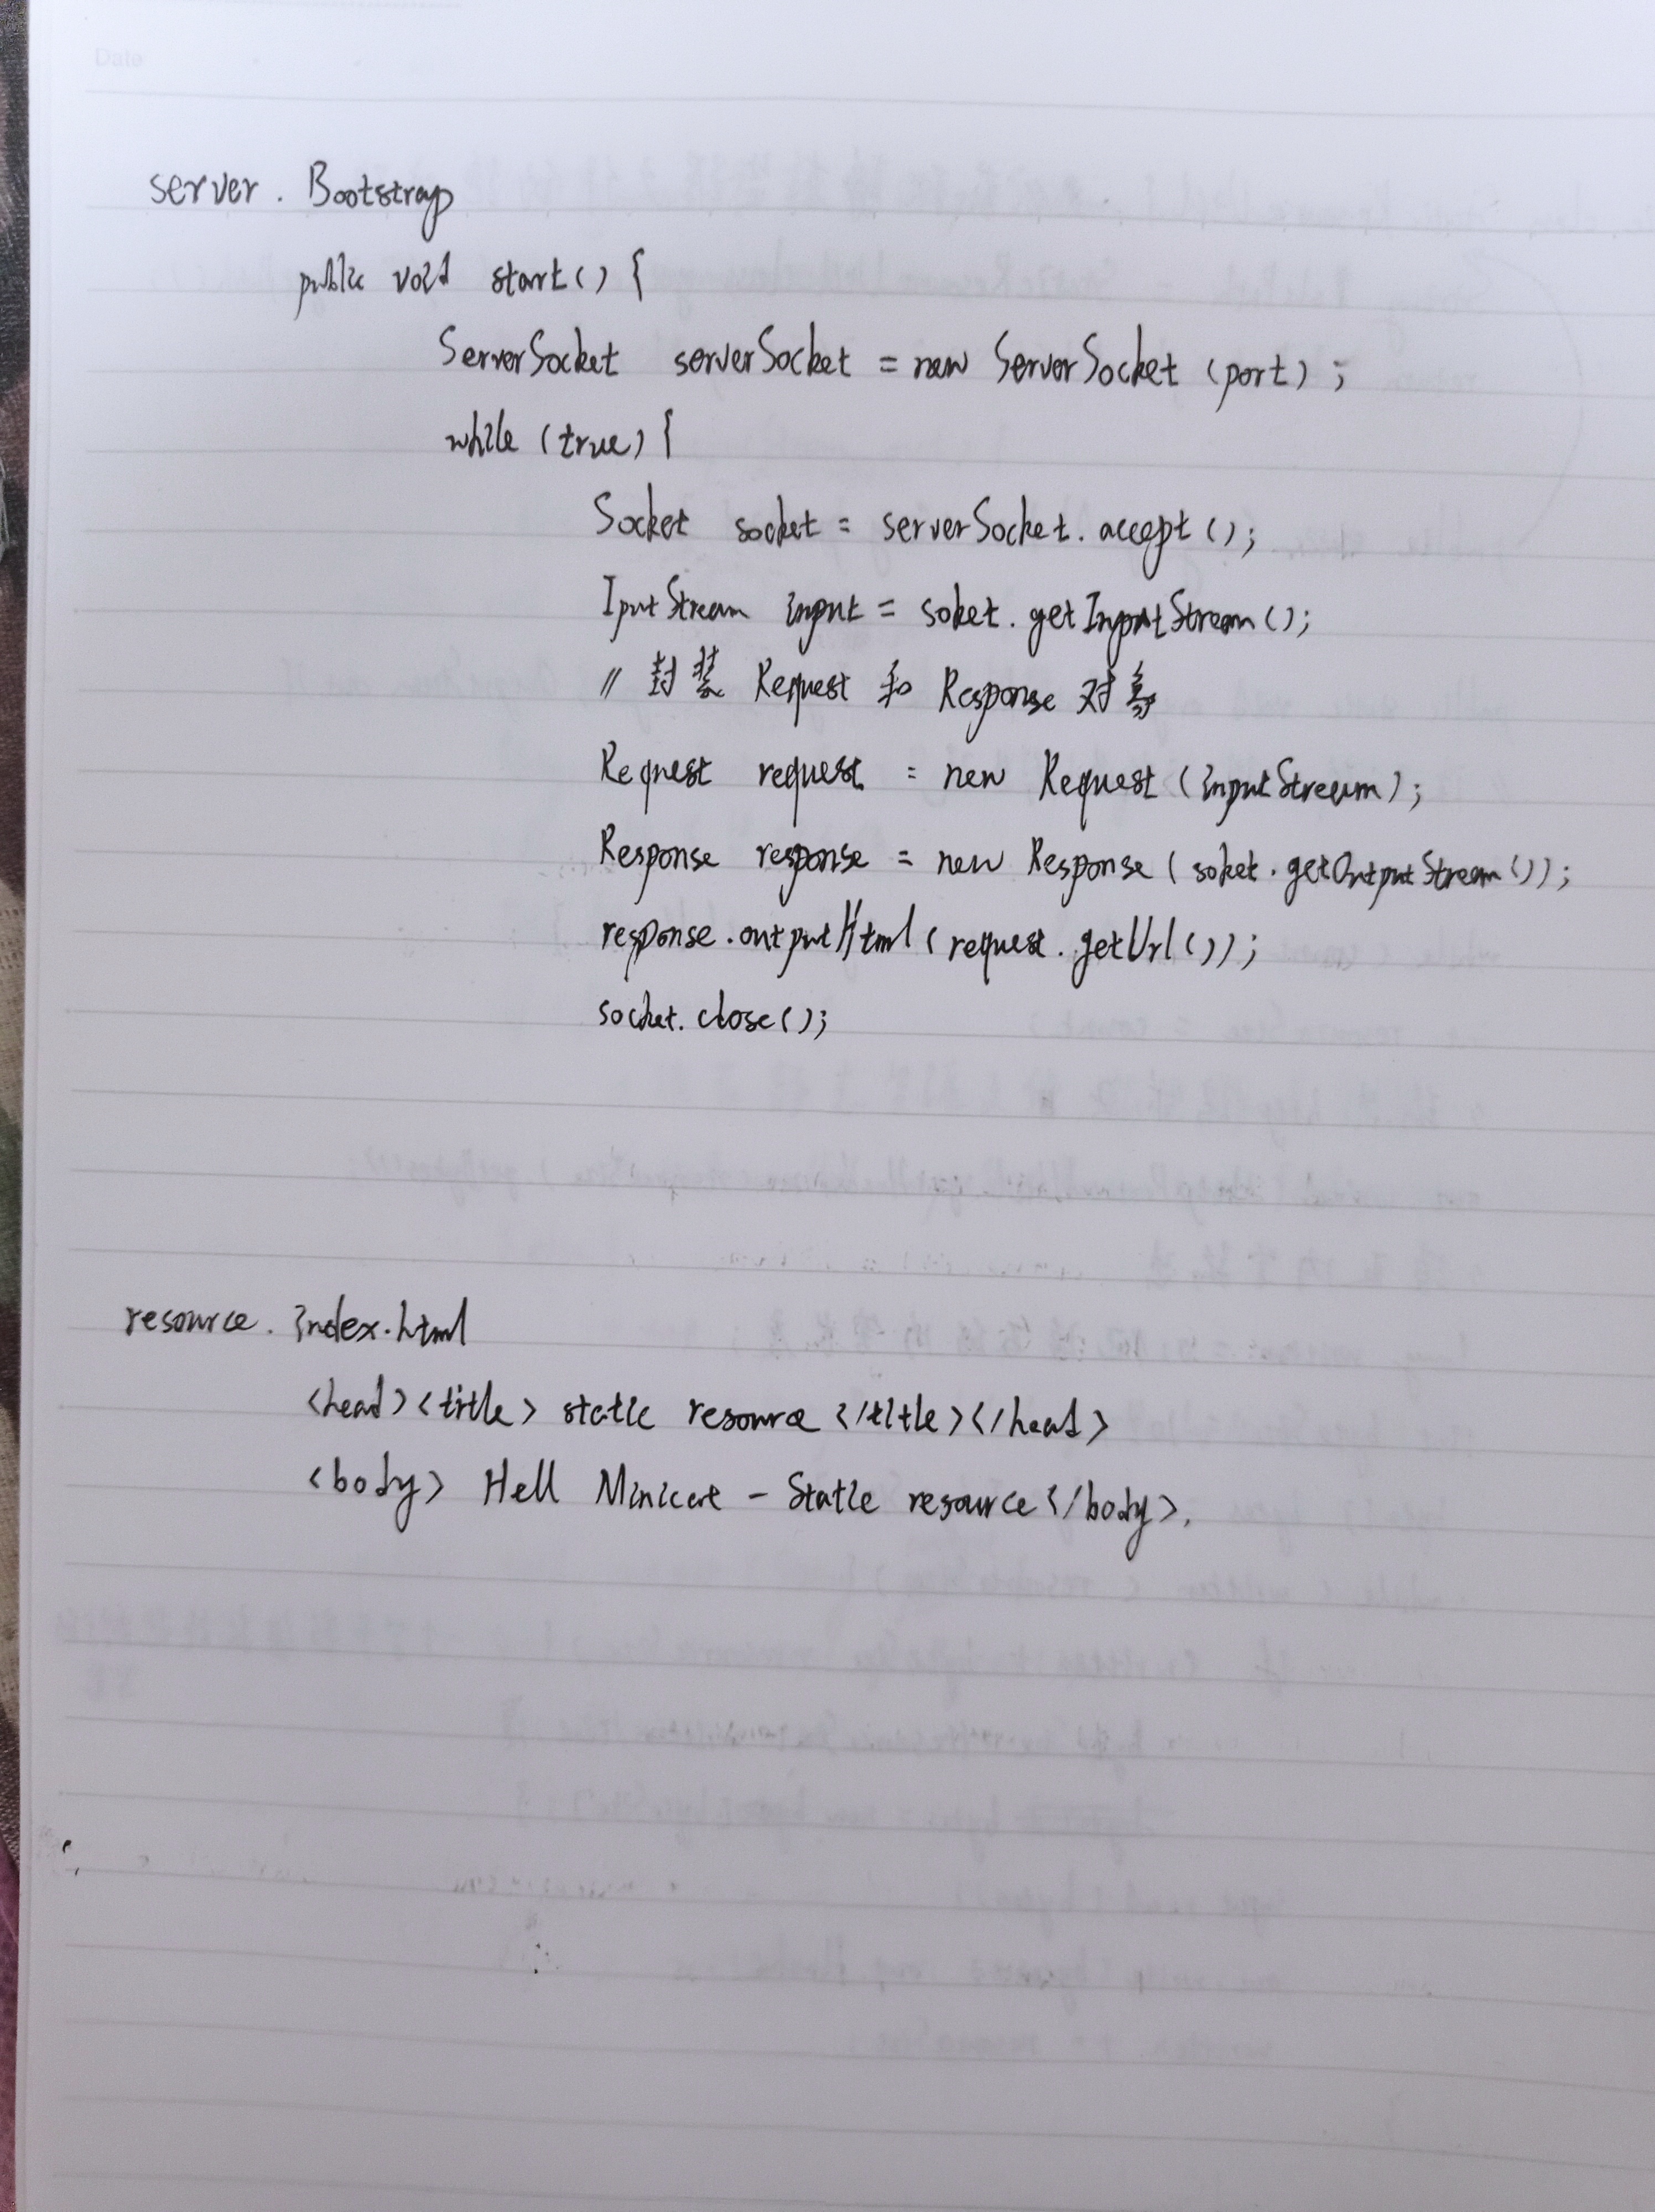 Date
server. Bootstrap
public void start() {
ServerSocket serverSocket = new ServerSocket (port) ;
while (true) {
Socket socket = serverSocket. accept ();
IputStream input = soket. getInputStream();
// 封装 Request 和 Response 对象
Request request = new Request (inputStream);
Response response = new Response ( soket. getOutputStream());
response.outputHtml ( request. getUrl());
socket. close();
resource. index.html
<head><title> static resource </title></head>
<body> Hell Minicat - Static resource </body>.